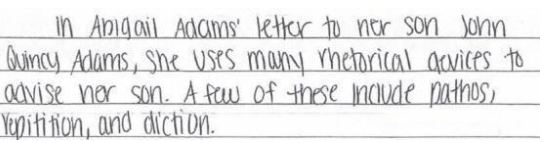 In Abigail Adams' letter to her son John
Quincy Adams, she uses many rhetorical devices to
advise her son. A few of these include pathos,
repitition, and diction.